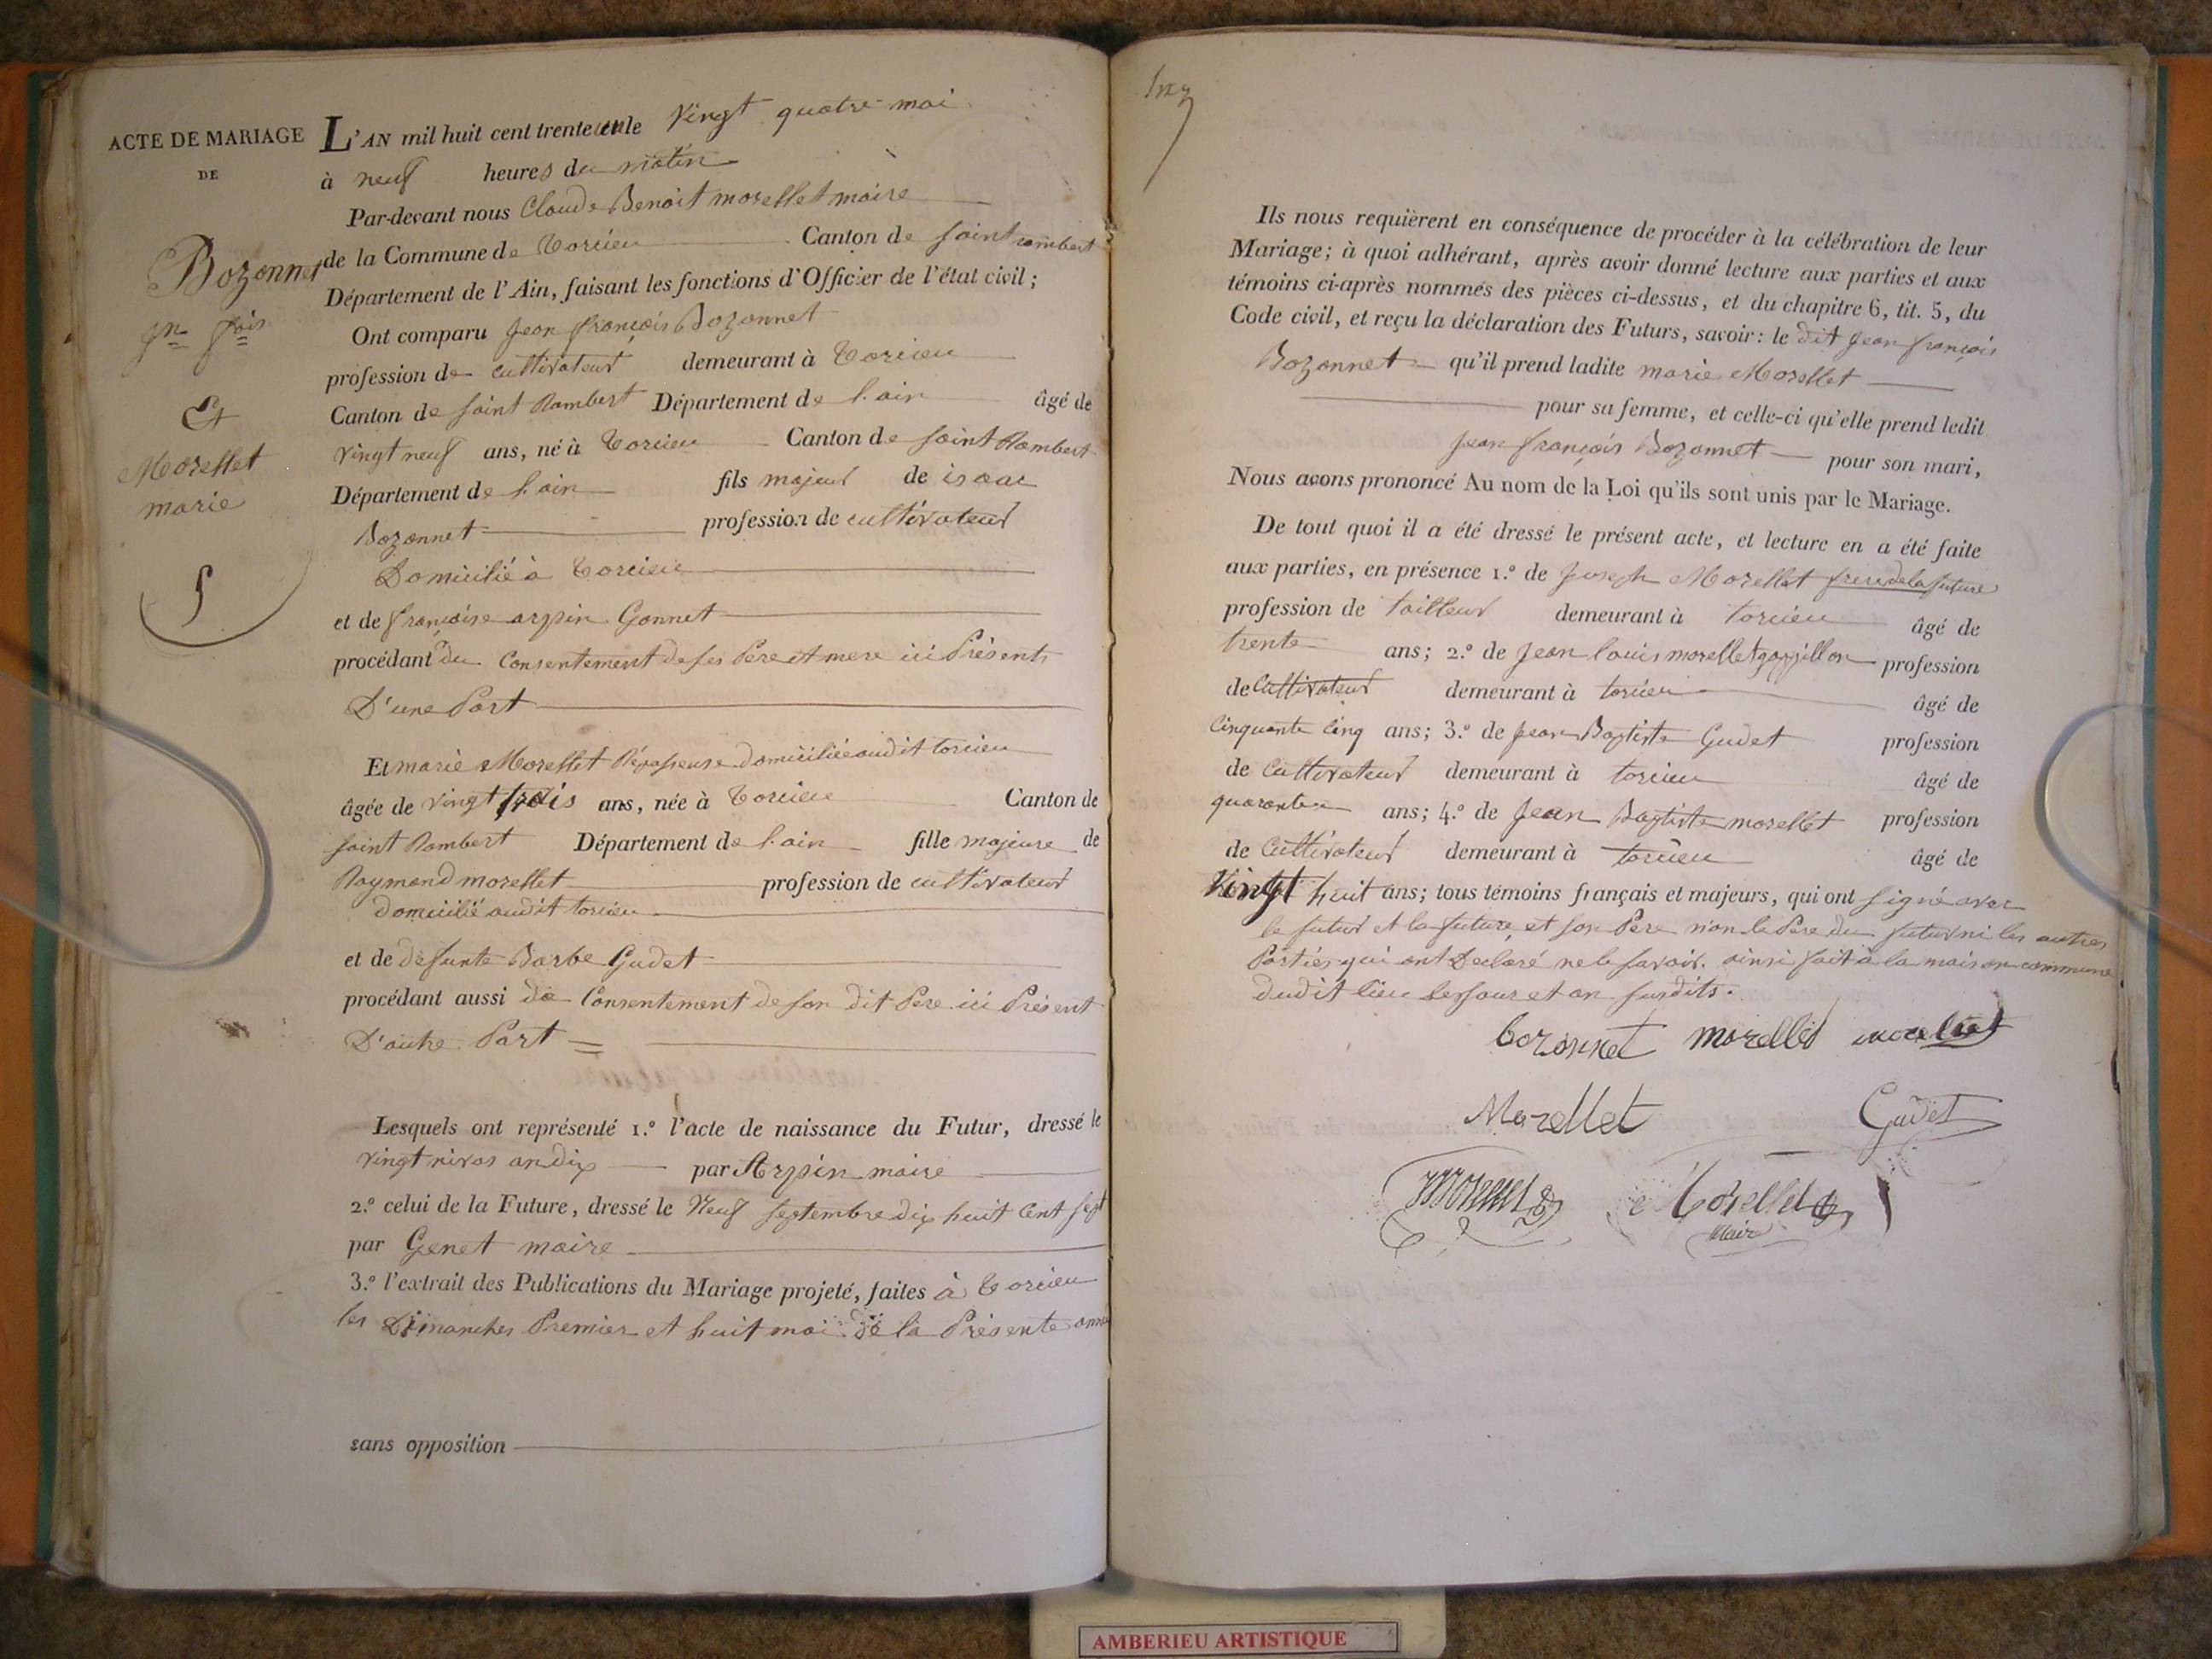 ACTE DE MARIAGE
DE
Bozonnet
jn fois
Et
Morellet
marie
L'AN mil huit cent trente un le vingt quatre mai
à neuf heures du matin
Par-devant nous Claude Benoit morellet maire
de la Commune de Torcieu Canton de saint rambert
Département de l'Ain, faisant les fonctions d'Officier de l'état civil;
Ont comparu Jean françois Bozonnet
profession de cultivateur demeurant à Torcieu
Canton de saint Rambert Département de l'ain âgé de
vingt neuf ans, né à Torcieu Canton de saint Rambert
Département de l'ain fils majeur de isaac
Bozonnet profession de cultivateur
Domicilié à Torcieu
et de françoise arpin Gonnet
procédant du Consentement de ses Père et mere ici Présents
D'une Part
Et marie Morellet Répasseuse domiciliée audit torcieu
âgée de vingt trois ans, née à Torcieu Canton de
saint Rambert Département de l'ain fille majeure de
Raymond morellet profession de cultivateur
domicilié audit torcieu
et de défunte Barbe Gudet
procédant aussi du Consentement de son dit Père ici Présent
D'autre Part
Lesquels ont représenté 1.º l'acte de naissance du Futur, dressé le
vingt nivos an dix par Arpin maire
2.º celui de la Future, dressé le Neuf septembre dix huit Cent sept
par Genet maire
3.º l'extrait des Publications du Mariage projeté, faites à Torcieu
les Dimanches Premier et huit mai de la Présente année
sans opposition
Ils nous requièrent en conséquence de procéder à la célébration de leur
Mariage; à quoi adhérant, après avoir donné lecture aux parties et aux
témoins ci-après nommés des pièces ci-dessus, et du chapitre 6, tit. 5, du
Code civil, et reçu la déclaration des Futurs, savoir: le dit Jean françois
Bozonnet qu'il prend ladite marie Morellet
pour sa femme, et celle-ci qu'elle prend ledit
Jean françois Bozonnet pour son mari,
Nous avons prononcé Au nom de la Loi qu'ils sont unis par le Mariage.
De tout quoi il a été dressé le présent acte, et lecture en a été faite
aux parties, en présence 1.º de Joseph Morellet frere de la future
profession de tailleur demeurant à torcieu âgé de
trente ans; 2.º de Jean louis morellet gappillon profession
de Cultivateur demeurant à torcieu âgé de
Cinquante Cinq ans; 3.º de Jean Baptiste Gudet profession
de Cultivateur demeurant à torcieu âgé de
quarante ans; 4.º de Jean Baptiste morellet profession
de Cultivateur demeurant à torcieu âgé de
Vingt huit ans; tous témoins français et majeurs, qui ont signé avec
le futur et la future et son Père non le Père du futur ni les autres
Parties qui ont Declaré ne le savoir. ainsi fait à la maison commune
dudit lieu les jour et an susdits.
bozonnet morellet morellet
Morellet Gudet
Morellet
Maire
AMBERIEU ARTISTIQUE